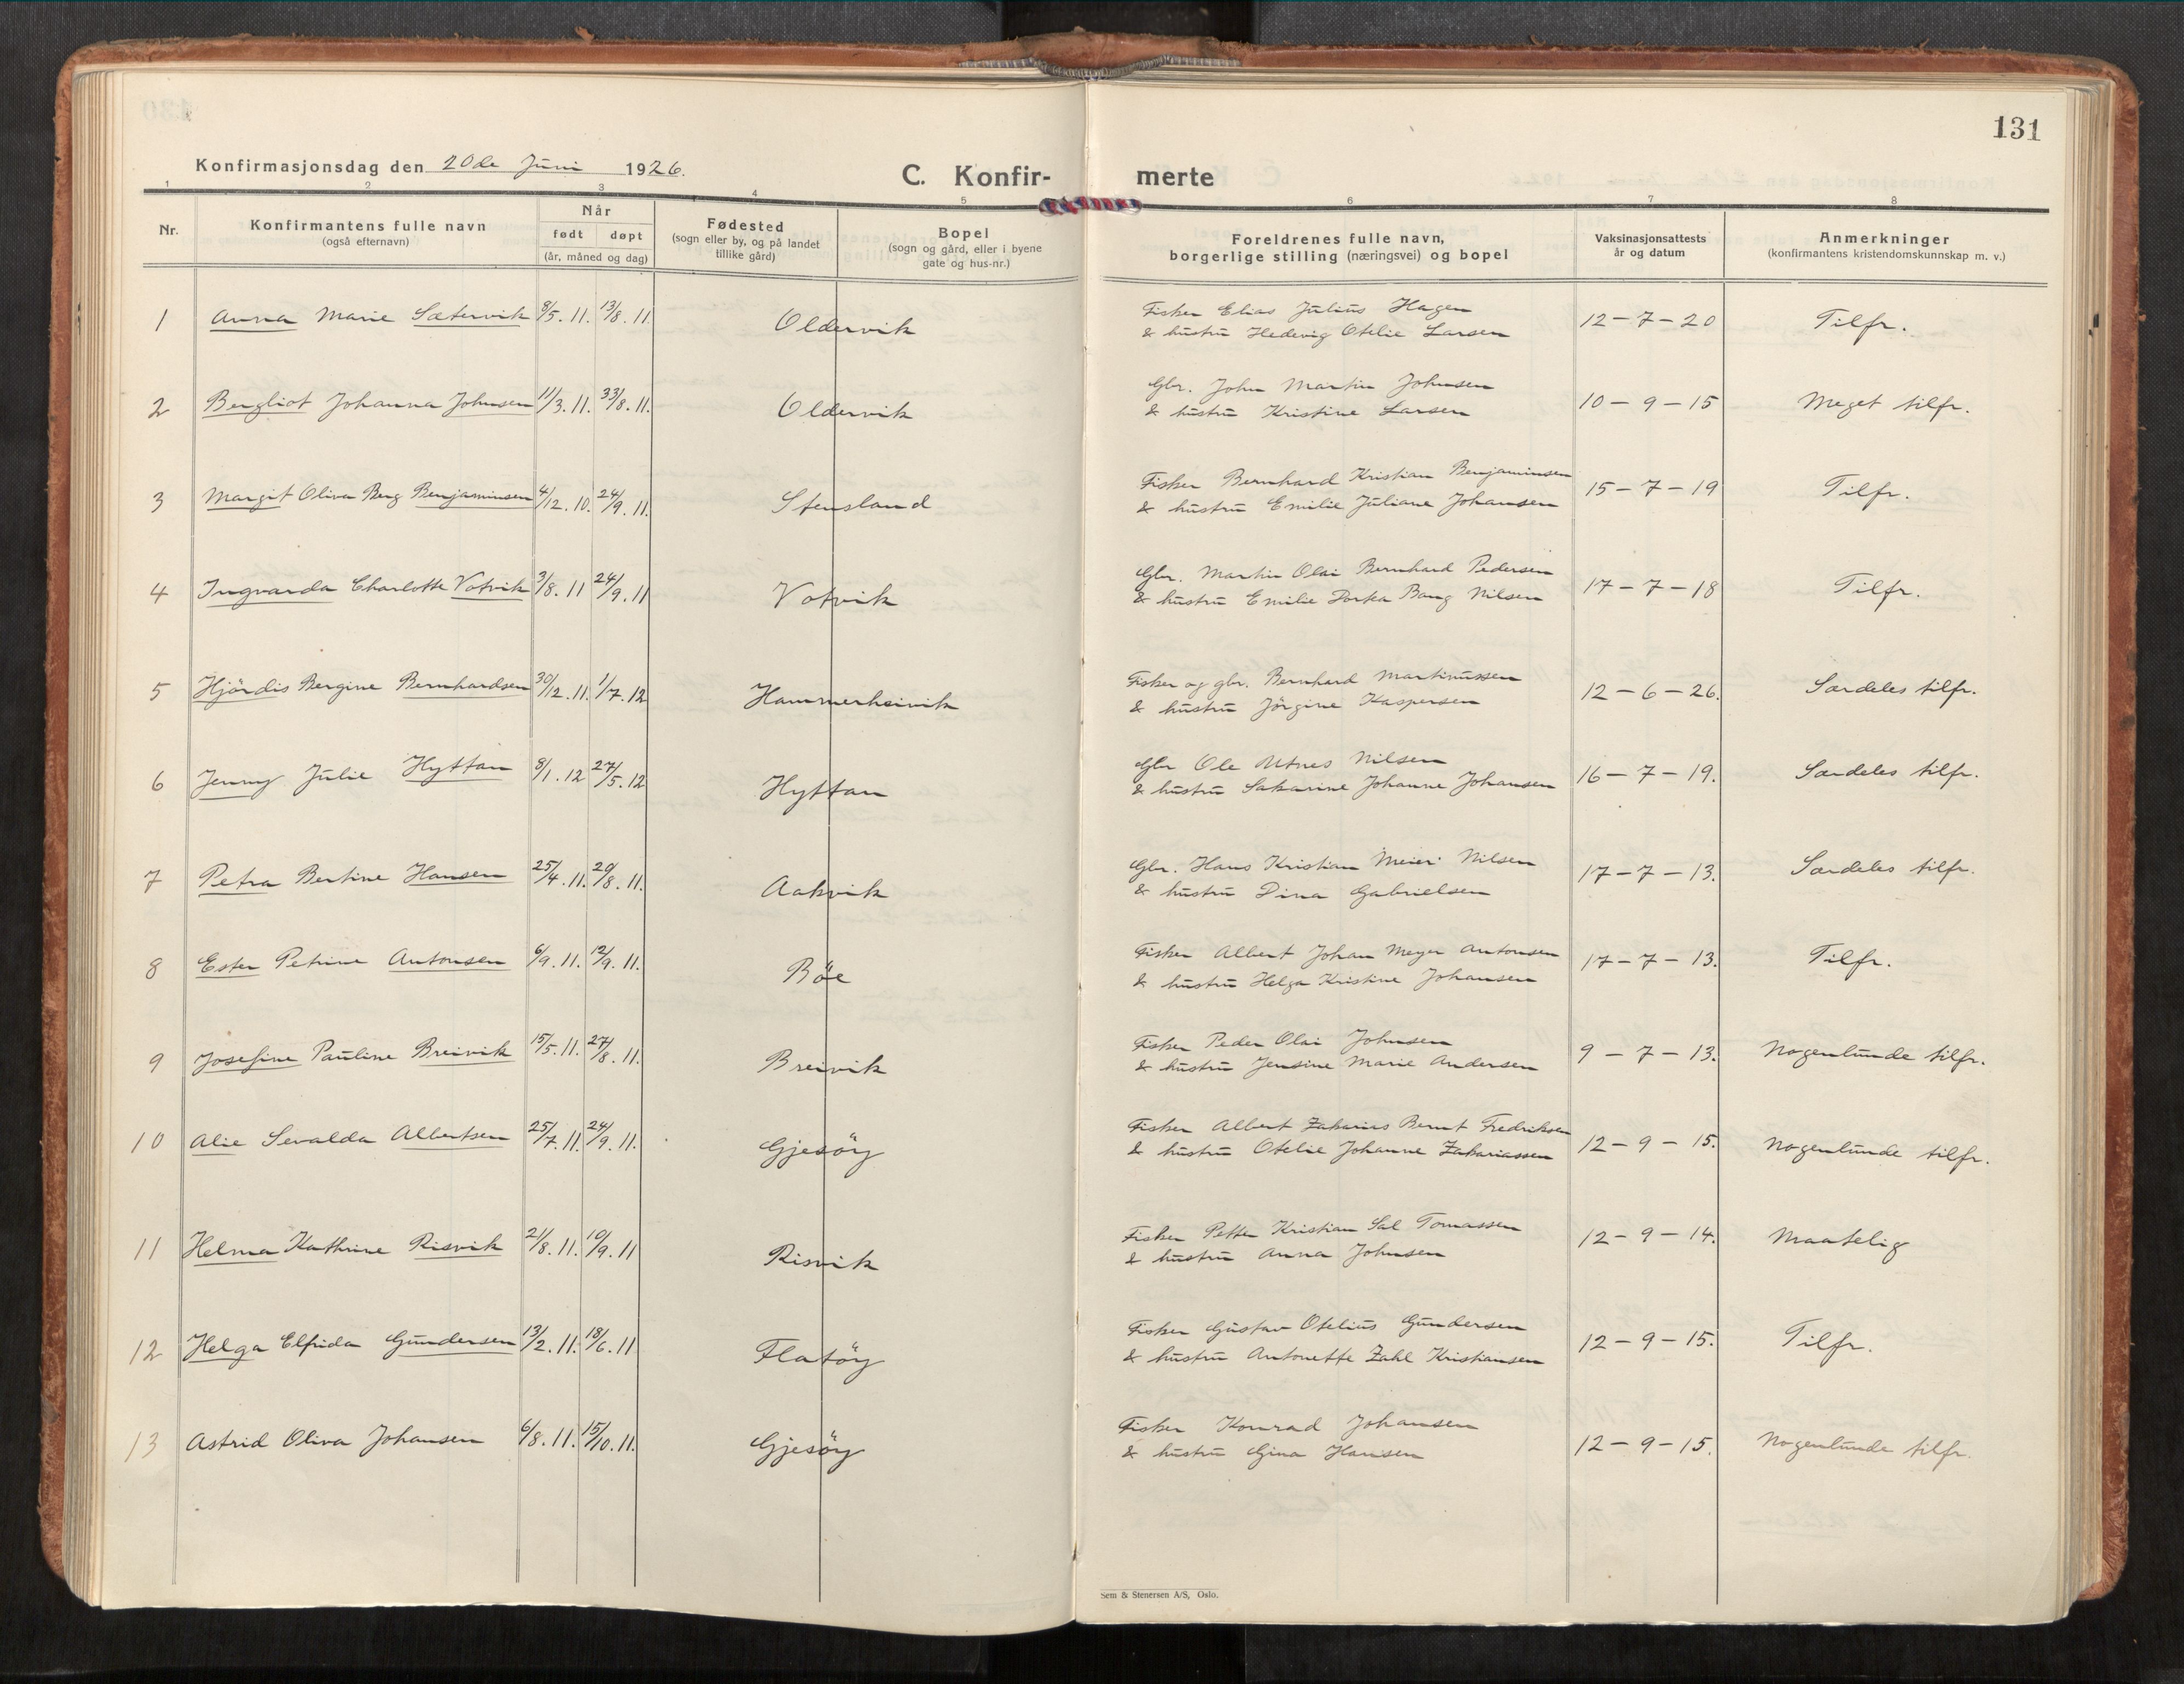 131
Konfirmasjonsdag den 20de Juni 1926.
C. Konfir- merte
1 2 3 4 5 6 7 8
Nr.
Konfirmantens fulle navn
(også efternavn)
Når
født døpt
(år, måned og dag)
Fødested
(sogn eller by, og på landet
tillike gård)
Bopel
(sogn og gård, eller i byene
gate og hus-nr.)
Foreldrenes fulle navn,
borgerlige stilling (næringsvei) og bopel
Vaksinasjonsattests
år og datum
Anmerkninger
(konfirmantens kristendomskunnskap m. v.)
1 Anna Marie Sætervik 8/5. 11. 13/8. 11. Oldervik
Fisker Elias Julius Hagen
& hustru Hedevig Otelie Larsen
12-7-20 Tilfr.
2 Bergliot Johanna Johnsen 11/3. 11. 33/8. 11. Oldervik
Gbr. John Martin Johnsen
& hustru Kristine Larsen
10-9-15 Meget tilfr.
3 Margit Oliva Berg Benjaminsen 4/12. 10. 24/9. 11. Stensland
Fisker Bernhard Kristian Benjaminsen
& hustru Emilie Juliane Johansen
15-7-19 Tilfr.
4 Ingvarda Charlotte Votvik 3/8. 11 24/9. 11 Votvik
Gbr. Martin Olai Bernhard Pedersen
& hustru Emilie Dorka Bang Nilsen
17-7-18 Tilfr.
5 Hjördis Bergine Bernhardsen 30/12. 11. 1/7. 12 Hammerheivik
Fisker og gbr. Bernhard Martinussen
& hustru Jörgine Kaspersen
12-6-26. Særdeles tilfr.
6 Jenny Julie Hyttan 8/1. 12 27/5. 12 Hyttan
Gbr Ole Utnes Nilsen
& hustru Sakarine Johanne Johansen
16-7-19. Særdeles tilfr.
7 Petra Bertine Hansen 25/4. 11. 20/8. 11. Aakvik
Gbr. Hans Kristian Meier Nilsen
& hustru Dina Gabrielsen
17-7-13. Særdeles tilfr.
8 Ester Petrine Antonsen 6/9. 11. 12/9. 11. Böe
Fisker Albert Johan Meyer Antonsen
& hustru Helga Kristine Johansen
17-7-13. Tilfr.
9 Josefine Pauline Breivik 15/5. 11. 27/8. 11. Breivik
Fisker Peder Olai Johnsen
& hustru Jensine Marie Andersen
9-7-13. Nogenlunde tilfr.
10 Alie Sevalda Albertsen 25/7. 11. 24/9. 11. Gjesöy
Fisker Albert Zakarias Bernt Fredriksen
& hustru Otelie Johanne Zakariassen
12-9-15. Nogenlunde tilfr.
11 Helma Kathrine Risvik 21/8. 11. 10/9. 11 Risvik
Fisker Petter Kristian Sal Tomassen
& hustru Anna Johnsen
12-9-14. Maatelig
12 Helga Elfrida Gundersen 13/2. 11. 18/6. 11 Flatöy
Fisker Gustav Otelius Gundersen
& hustru Antonette Zahl Kristiansen
12-9-15. Tilfr.
13 Astrid Oliva Johansen 6/8. 11. 15/10. 11. Gjesöy
Fisker Konrad Johansen
& hustru Gina Hansen
12-9-15. Nogenlunde tilfr.
Sem & Stenersen A/S, Oslo.